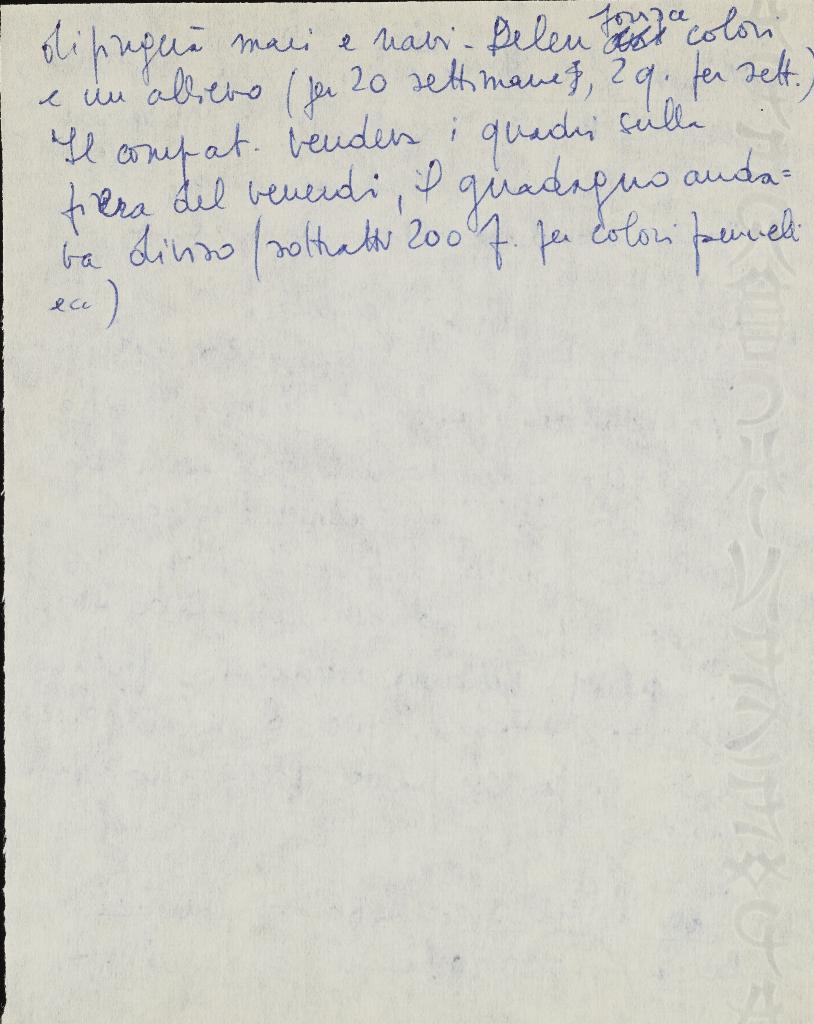 dipingerà mari e navi - Delen forniva colori
e un allievo (per 20 settimane, 2 q. per sett.)
Il compat. vendeva i quadri sulla
fiera del venerdi, il guadagno anda=
va diviso (sottratti 200 f. per colori pennelli
ecc)